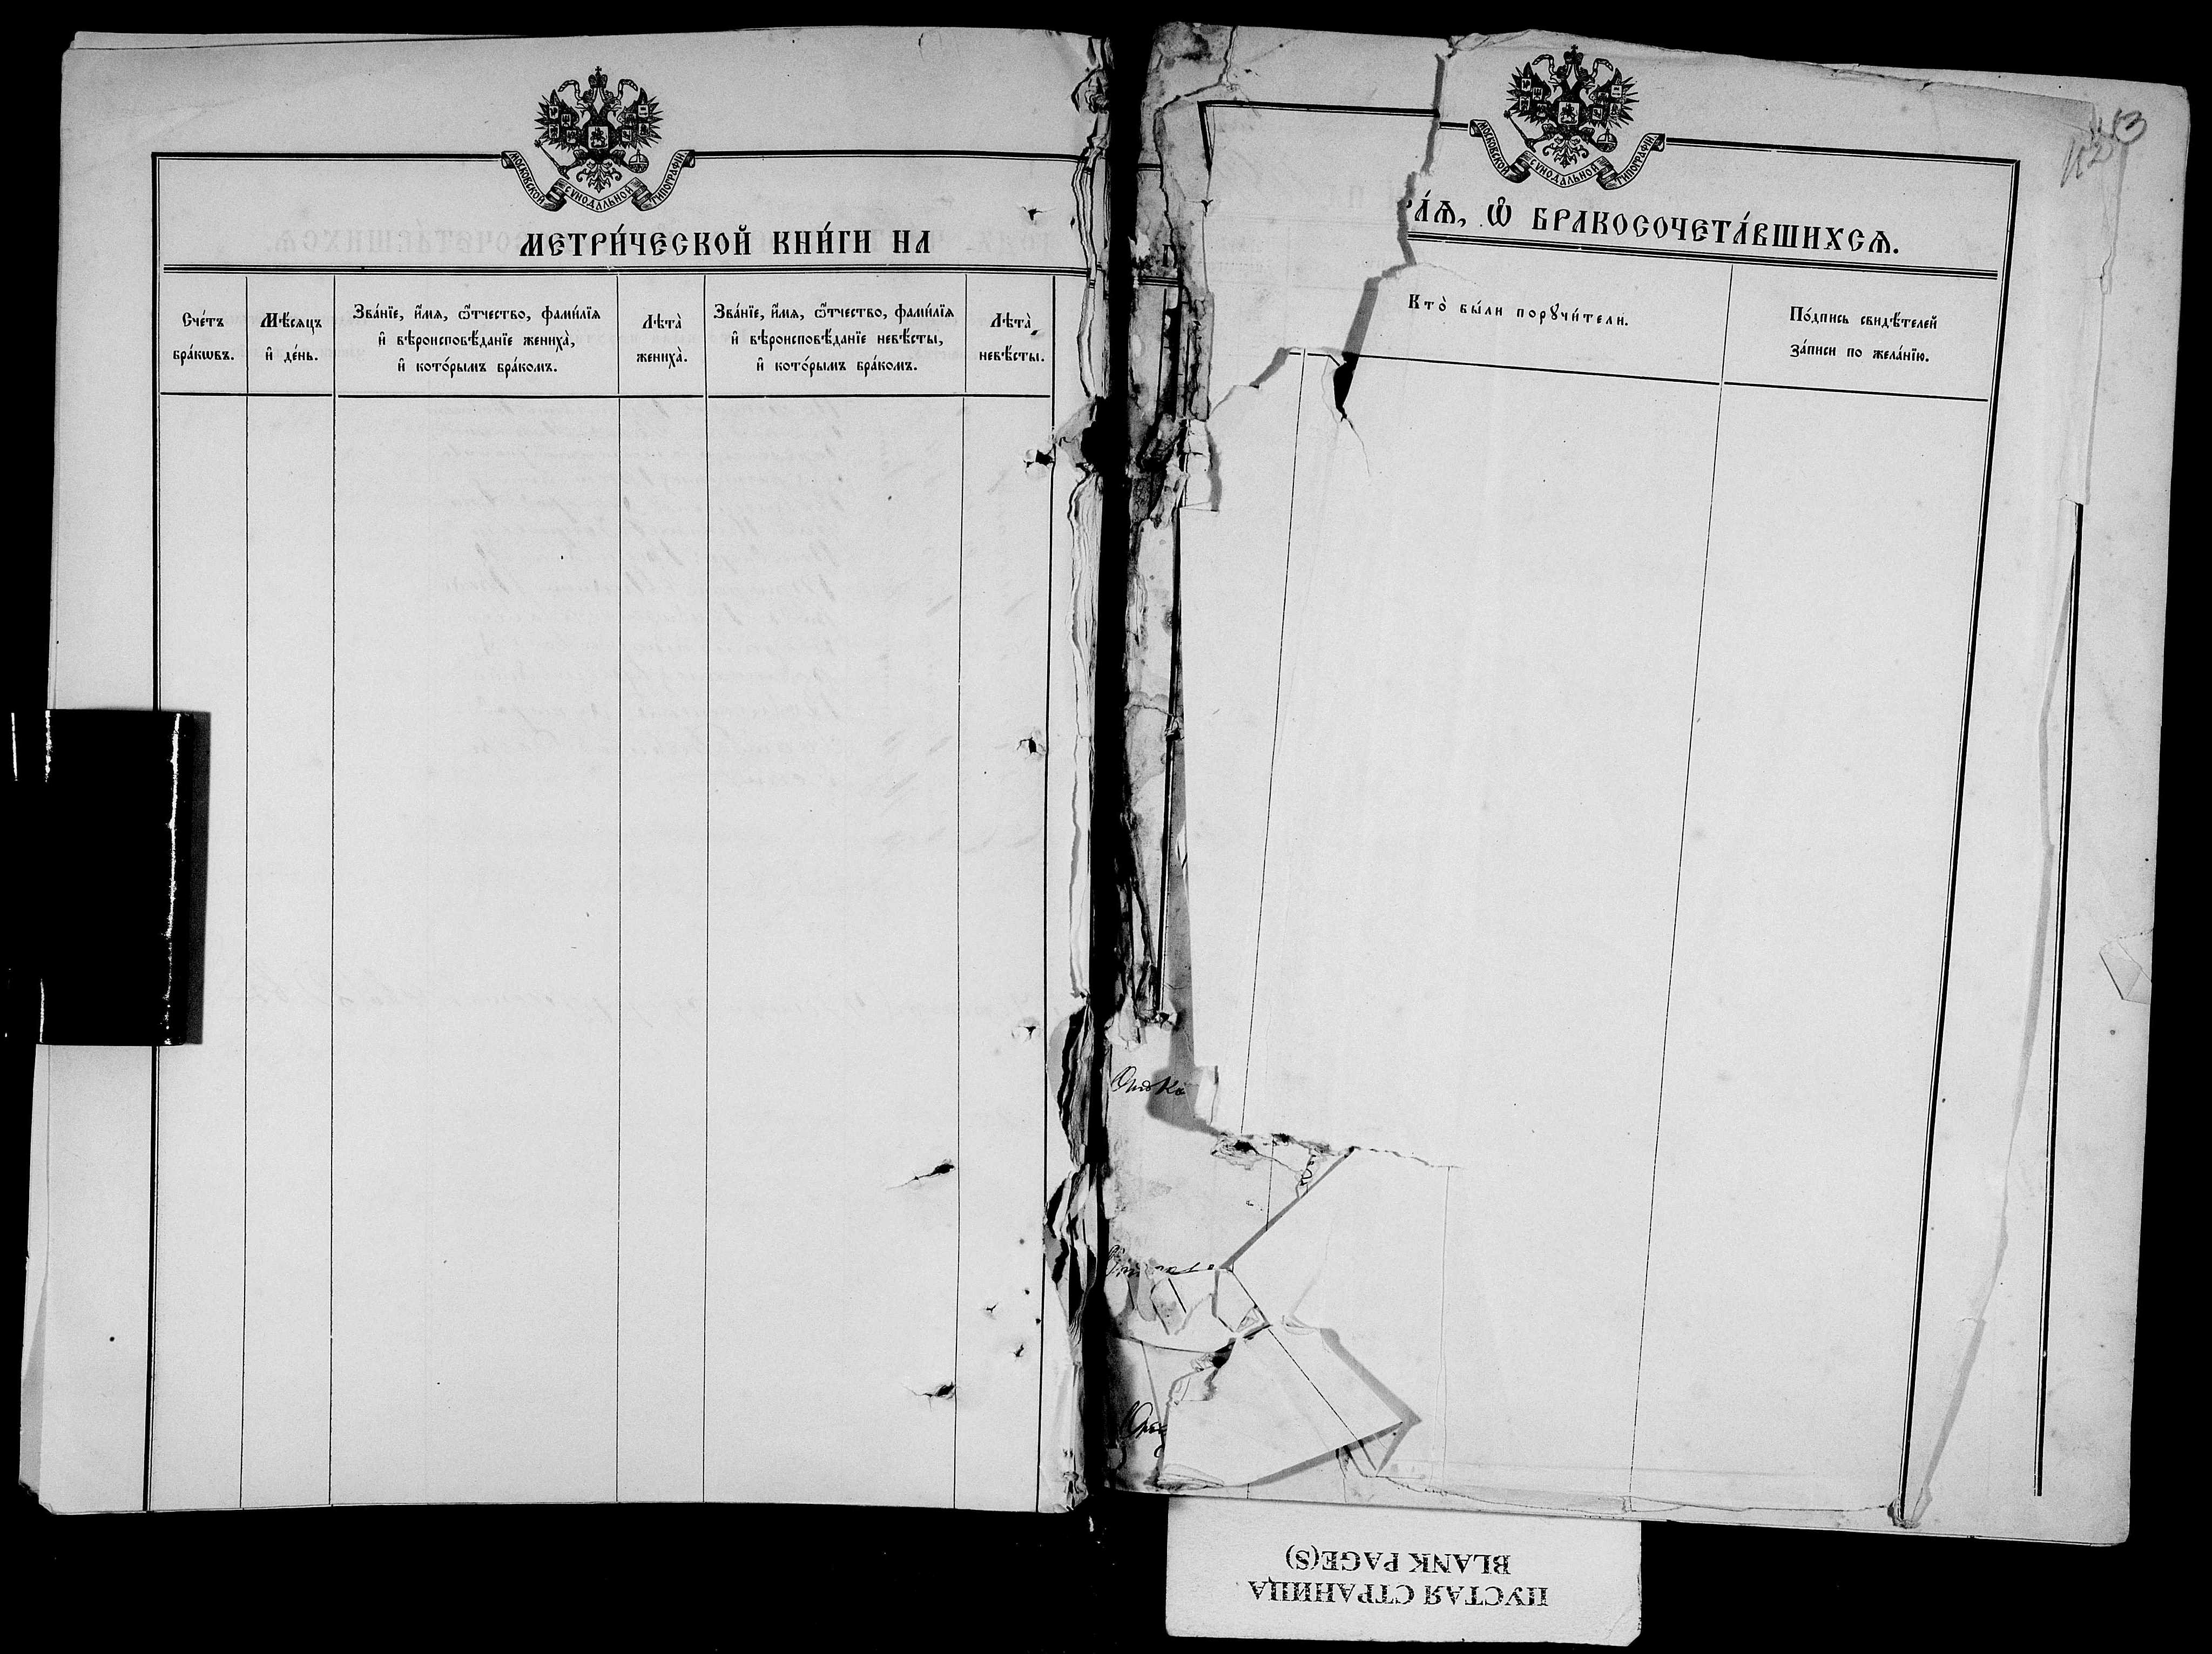 МОСКОВСКОЙ СѴНОДАЛЬНОЙ ТИПОГРАФІИ.
МЕТРИ́ЧЕСКОЙ КНИ́ГИ НА
Сче́тъ бра́кѡвъ.
Мѣ́сяцъ и҆ де́нь.
Зва́нїе, и҆́мѧ, ѻ҆́тчество, фами́лїѧ
и҆ вѣроисповѣ́данїе жениха̀,
и҆ кото́рымъ бра́комъ.
Лѣта̀ жениха̀.
Зва́нїе, и҆́мѧ, ѻ҆́тчество, фами́лїѧ
и҆ вѣроисповѣ́данїе невѣ́сты,
и҆ кото́рымъ бра́комъ.
Лѣта̀ невѣ́сты.
МОСКОВСКОЙ СѴНОДАЛЬНОЙ ТИПОГРАФІИ.
РА́Ѧ, Ѽ БРАКОСОЧЕТА́ВШИХСѦ.
Кто̀ бы́ли порꙋчи́тели.
По́дпись свидѣ́телей
за́писи по жела́нїю.
ПУСТАЯ СТРАНИЦА
BLANK PAGE(S)